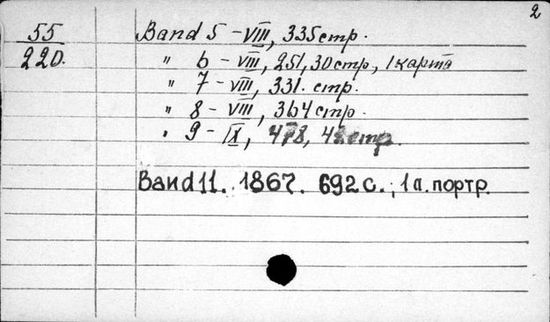 2
55 Band 5 - VIII, 335 стр.
220. " 6 - VIII, 251, 30 стр, 1 карта
" 7 - VIII, 331. стр.
" 8 - VIII, 364 стр.
" 9 - IX, 478, 42 стр.
Band 11. 1867. 692 с.; 1 л. портр.